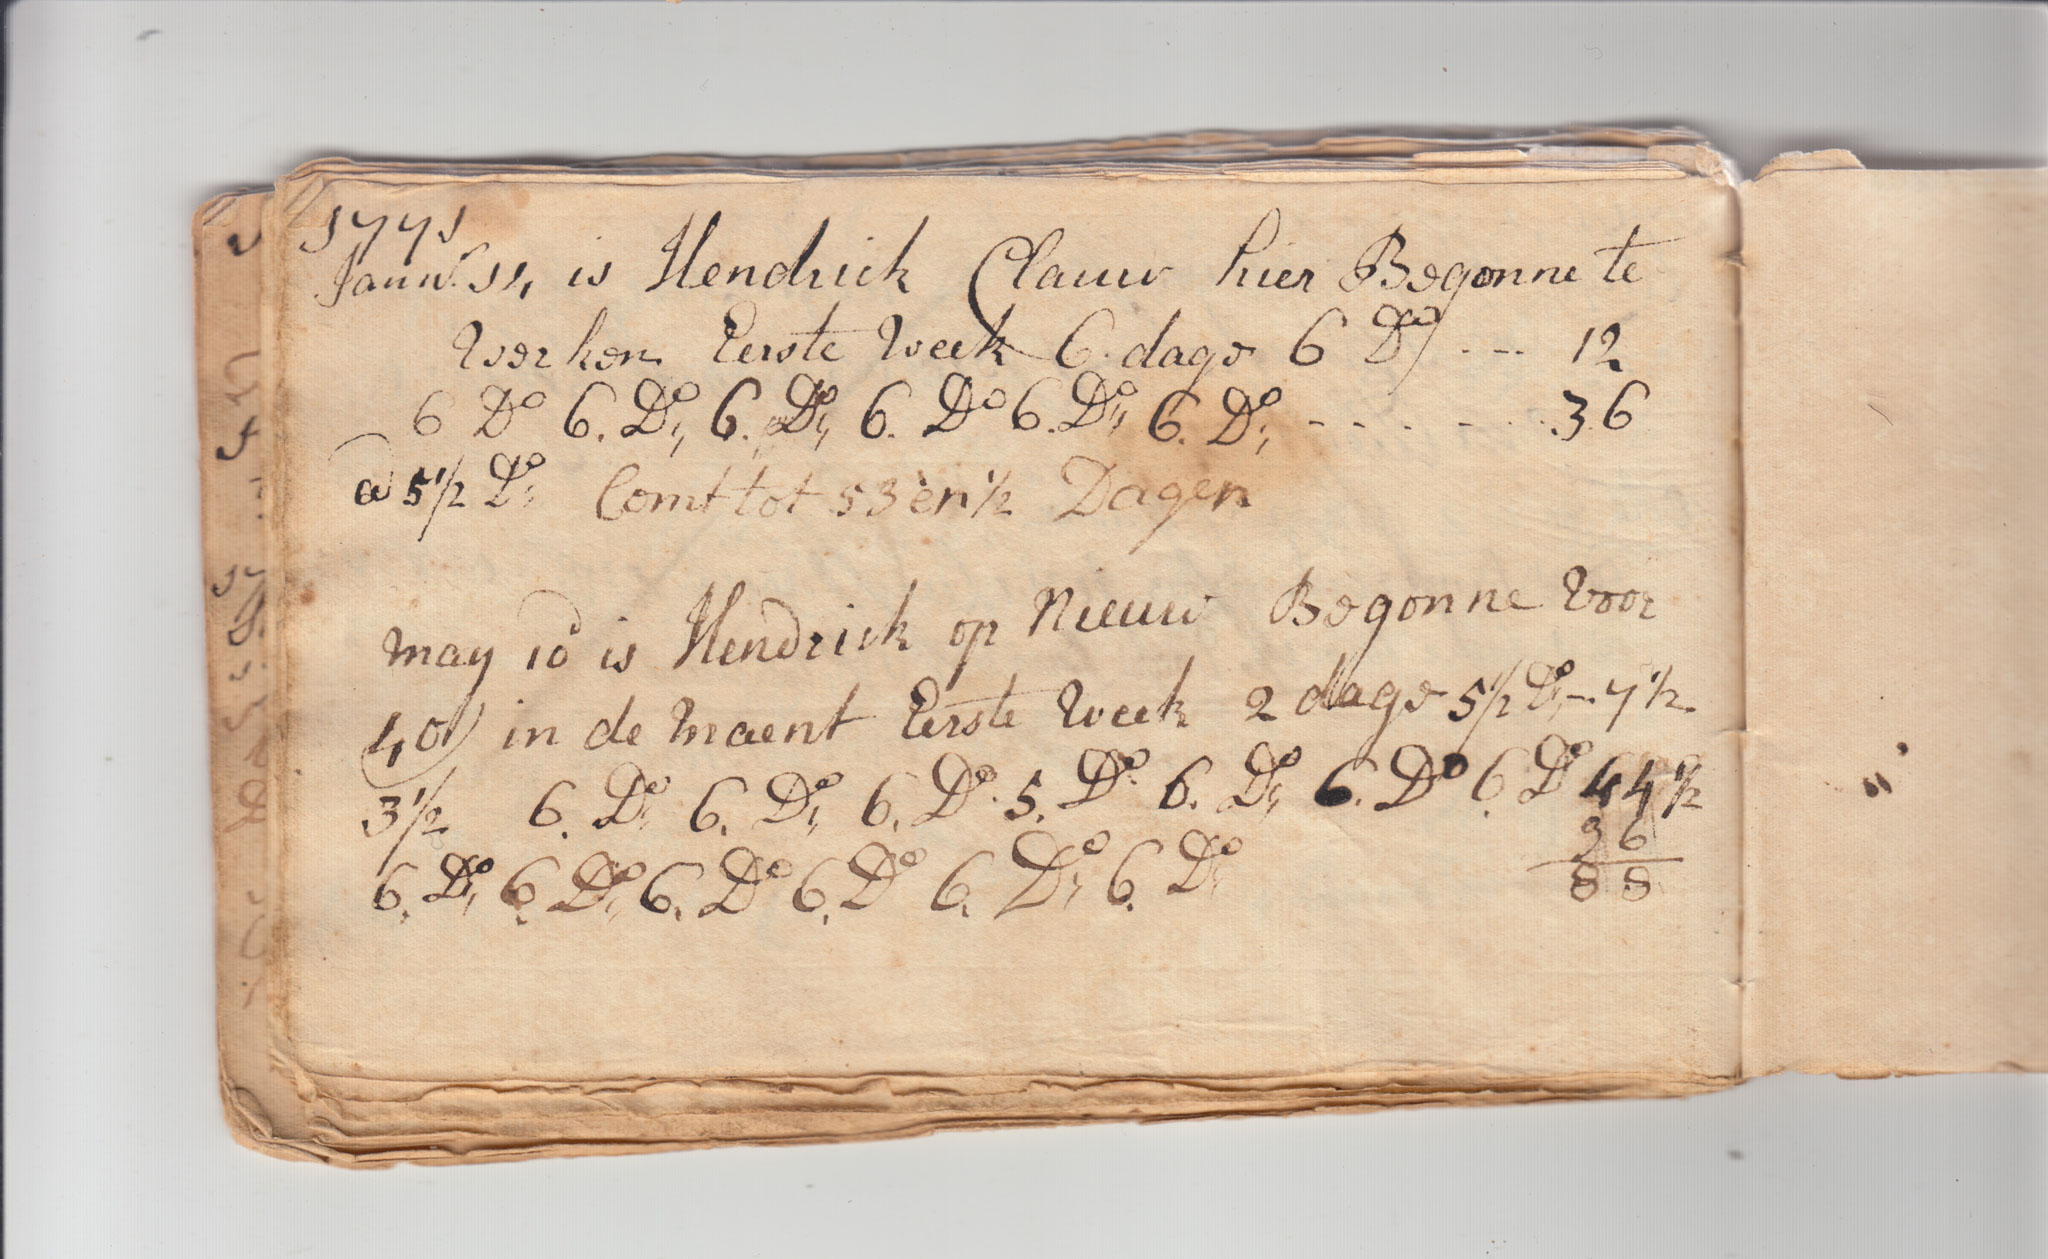 1771
Janu͏ʳ 14 is Hendrick Clauw hier Begonne te
Werken Eerste Week 6 dage 6 Dº --- 12
6 Dº 6. Dº, 6. Dº, 6. Dº 6. Dº, 6. Dº, - - - - - - 36
a 5½ Dº, Comt tot 53 en ½ Dagen
may 10 is Hendrick op Nieuw Begonne Voor
40/ in de maent Eerste Week 2 dage 5½ Dº, - 7½
3½ 6. Dº, 6. Dº, 6. Dº 5. Dº 6. Dº, 6. Dº 6. Dº 44½
36
6. Dº, 6. Dº, 6. Dº 6. Dº 6. Dº, 6. Dº, 88